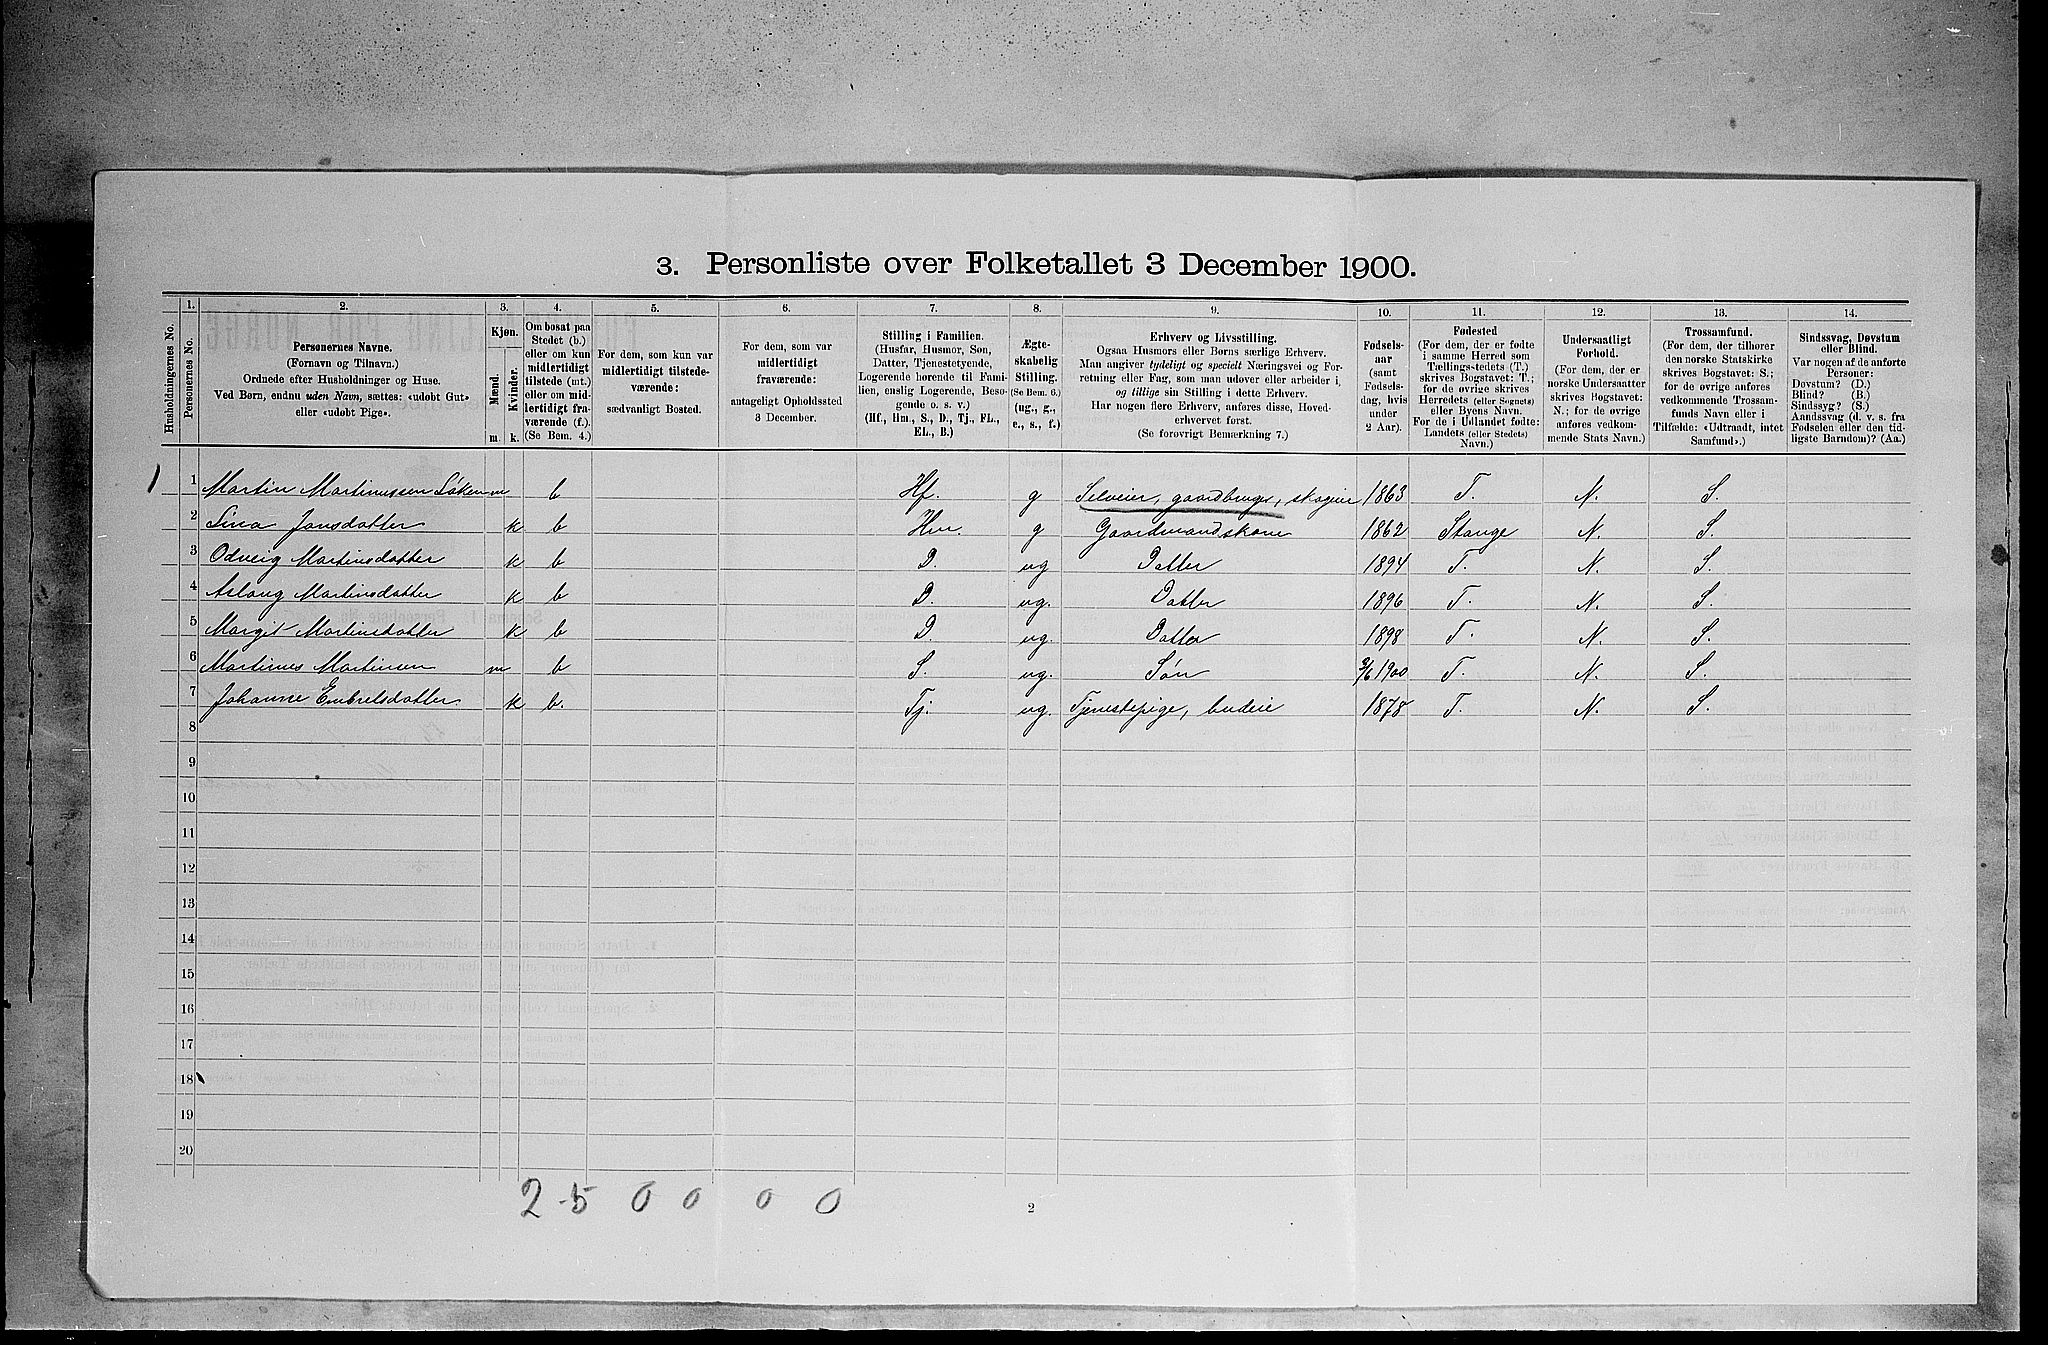 3. Personliste over Folketallet 3 December 1900.
1. 2. 3. 4. 5. 6. 7. 8. 9. 10. 11. 12. 13. 14.
Husholdningernes No.
Personernes No.
Personernes Navne.
(Fornavn og Tilnavn.)
Ordnede efter Husholdninger og Huse.
Ved Børn, endnu uden Navn, sættes: «udøbt Gut»
eller «udøbt Pige».
Kjøn.
Mænd.
Kvinder.
m. k.
Om bosat paa
Stedet (b.)
eller om kun
midlertidigt
tilstede (mt.)
eller om mid-
lertidigt fra-
værende (f.).
(Se Bem. 4.)
For dem, som kun var
midlertidigt tilstede-
værende:
sædvanligt Bosted.
For dem, som var
midlertidigt
fraværende:
antageligt Opholdssted
3 December.
Stilling i Familien.
(Husfar, Husmor, Søn,
Datter, Tjenestetyende,
Logerende hørende til Fami-
lien, enslig Logerende, Besø-
gende o. s. v.)
(Hf., Hm., S., D., Tj., FL.,
EL., B.)
Ægte-
skabelig
Stilling.
(Se Bem. 6.)
(ug., g.,
e., s., f.)
Erhverv og Livsstilling.
Ogsaa Husmors eller Børns særlige Erhverv.
Man angiver tydeligt og specielt Næringsvei og For-
retning eller Fag, som man udøver eller arbeider i,
og tillige sin Stilling i dette Erhverv.
Har nogen flere Erhverv, anføres disse, Hoved-
erhvervet først.
(Se forøvrigt Bemærkning 7.)
Fødsels-
aar
(samt
Fødsels-
dag, hvis
under
2 Aar).
Fødested
(For dem, der er fødte
i samme Herred som
Tællings-stedets (T.)
skrives Bogstavet: T.;
for de øvrige skrives
Herredets (eller Sognets)
eller Byens Navn.
For de i Udlandet fødte:
Landets (eller Stedets)
Navn.)
Undersaatligt
Forhold.
(For dem, der er
norske Undersaatter
skrives Bogstavet:
N.; for de øvrige
anføres vedkom-
mende Stats Navn.)
Trossamfund.
(For dem, der tilhører
den norske Statskirke
skrives Bogstavet: S.;
for de øvrige anføres
vedkommende Trossam-
funds Navn eller i
Tilfælde: «Udtraadt, intet
Samfund».)
Sindssvag, Døvstum
eller Blind.
Var nogen af de anførte
Personer:
Døvstum? (D.)
Blind? (B.)
Sindssyg? (S.)
Aandssvag (d. v. s. fra
Fødselen eller den tid-
ligste Barndom)? (Aa.)
1 1 Martin Martinussen m b Hf. g Selveier, gaardbruger, skogeier 1863 T. N. S.
2 Lina Jonsdatter k b Hm. g Gaardmandskone 1862 Stange N. S.
3 Odveig Martinsdatter k b D. ug Datter 1894 T. N. S.
4 Aslaug Martinsdatter k b D. ug. Datter 1896 T. N. S.
5 Margit Martinsdatter k b D. ug. Datter 1898 T. N. S.
6 Martinus Martinsen m b S. ug. Søn 1900 T. N. S.
7 Johanne Embretsdatter k b. Tj. ug. Tjenestepige, budeie 1878 T. N. S.
8
9
10
11
12
13
14
15
16
17
18
19
20
2-5 0 0 0 0
2